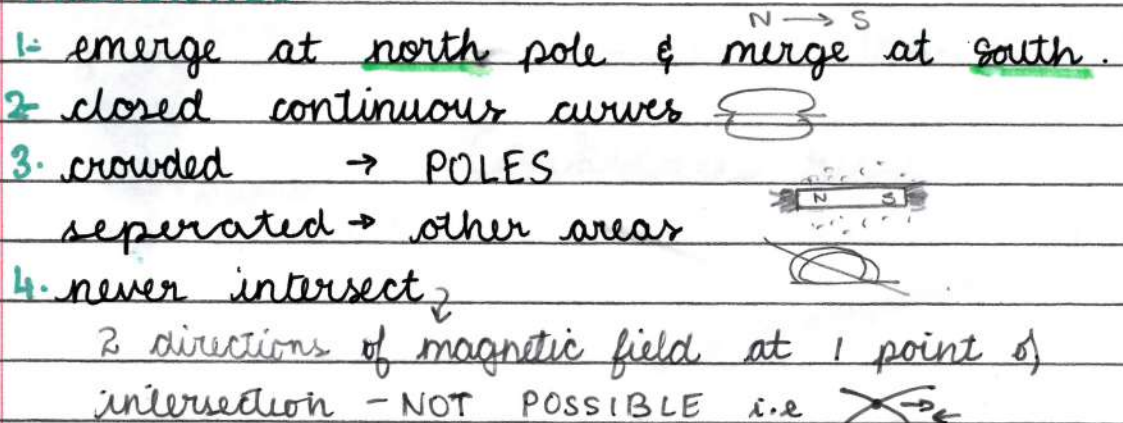 N → S
1- emerge at north pole & merge at south.
2- closed continuous curves
3. crowded → POLES
N S
seperated → other areas
4. never intersect
2 directions of magnetic field at 1 point of
intersection - NOT POSSIBLE i.e